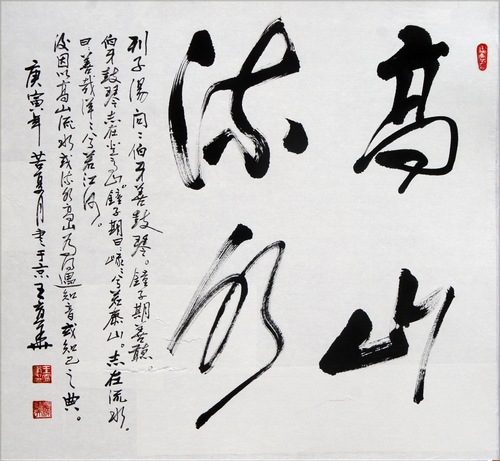 高山
流水
列子湯问：伯牙善鼓琴。鐘子期善聽。
伯牙鼓琴志在登高山。鐘子期曰：峨々兮若泰山。志在流水。
曰：善哉洋々兮若江河。
後因以高山流水或流水高山为遇知音或知己之典。
庚寅年苦夏月书于京王华